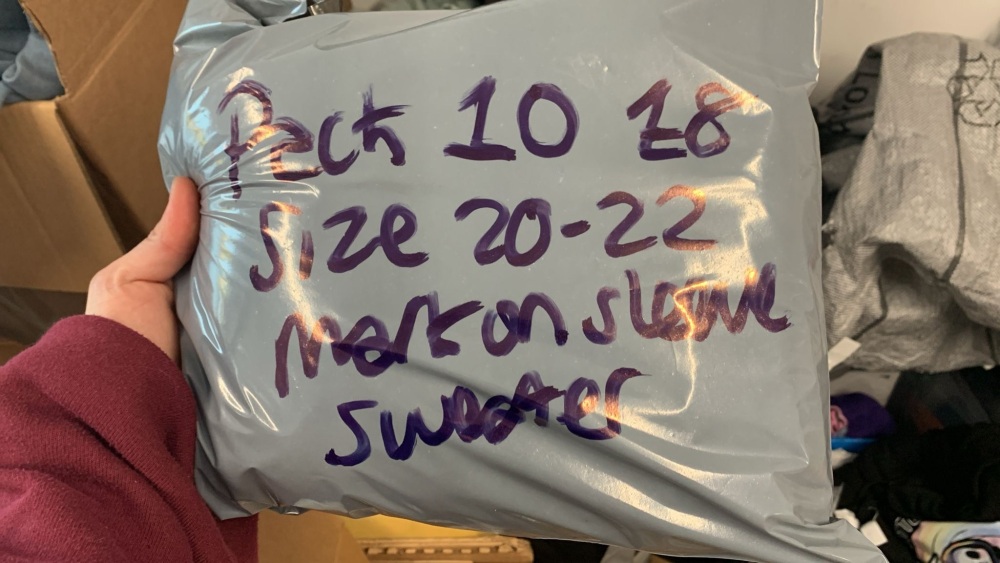 Peck 10 18
Size 20-22
mark on sleeve
sweater